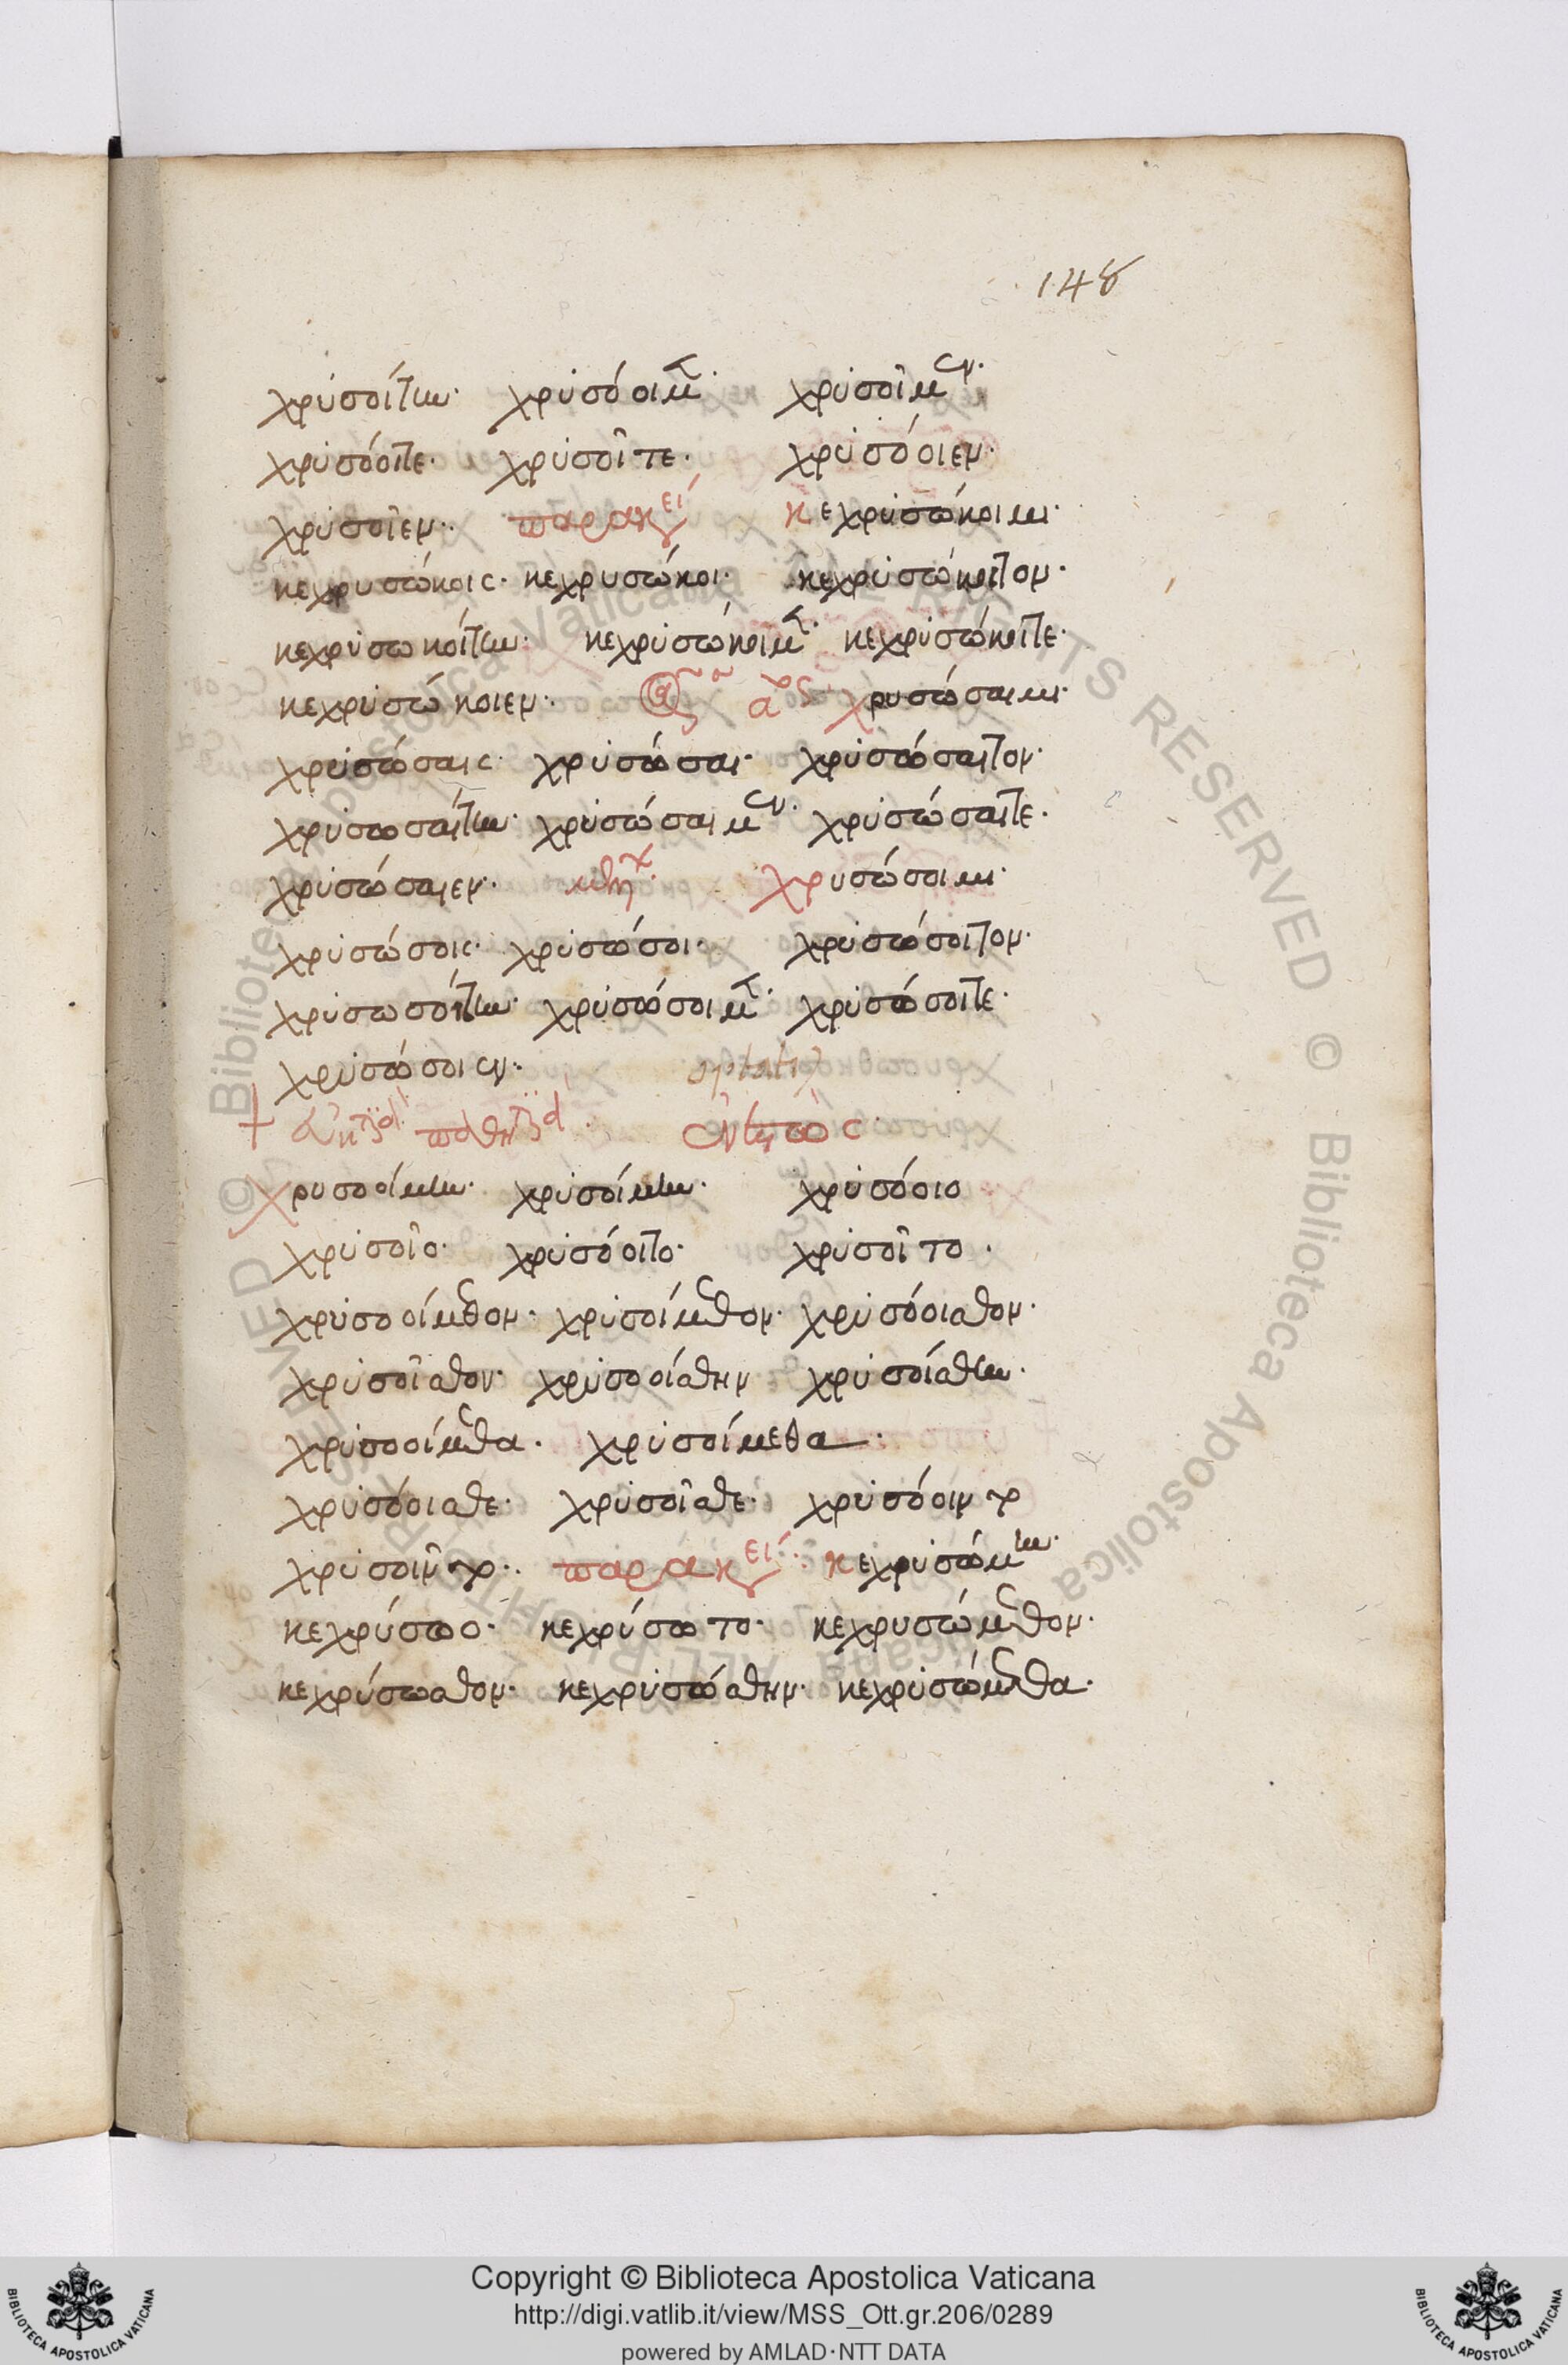 148
χρυσοίτην· χρυσόοιμεν· χρυσοῖμεν·
χρυσόοιτε· χρυσοῖτε· χρυσόοιεν·
χρυσοῖεν· παρακει κεχρυσώκοιμι·
κεχρυσώκοις· κεχρυσώκοι· κεχρυσώκοιτον·
κεχρυσωκοίτην· κεχρυσώκοιμεν· κεχρυσώκοιτε·
κεχρυσώκοιεν· χρυσώσαιμι·
χρυσώσαις· χρυσώσαι· χρυσώσαιτον·
χρυσωσαίτην· χρυσώσαιμεν· χρυσώσαιτε·
χρυσώσαιεν· χρυσώσοιμι·
χρυσώσοις· χρυσώσοι· χρυσώσοιτον·
χρυσωσοίτην· χρυσώσοιμεν· χρυσώσοιτε·
χρυσώσοιεν· optati
ἐνεστὼς
χρυσοοίμην· χρυσοίμην· χρυσόοιο
χρυσοῖο· χρυσόοιτο· χρυσοῖτο·
χρυσοοίμεθον· χρυσοίμεθον· χρυσόοισθον·
χρυσοῖσθον· χρυσοοίσθην χρυσοίσθην·
χρυσοοίμεθα· χρυσοίμεθα·
χρυσόοισθε· χρυσοῖσθε· χρυσόοιντο
χρυσοῖντο· παρακει κεχρυσώμην·
κεχρύσωο· κεχρύσωτο· κεχρυσώμεθον·
κεχρύσωσθον· κεχρυσώσθην· κεχρυσώμεθα·
Copyright © Biblioteca Apostolica Vaticana
http://digi.vatlib.it/view/MSS_Ott.gr.206/0289
powered by AMLAD·NTT DATA